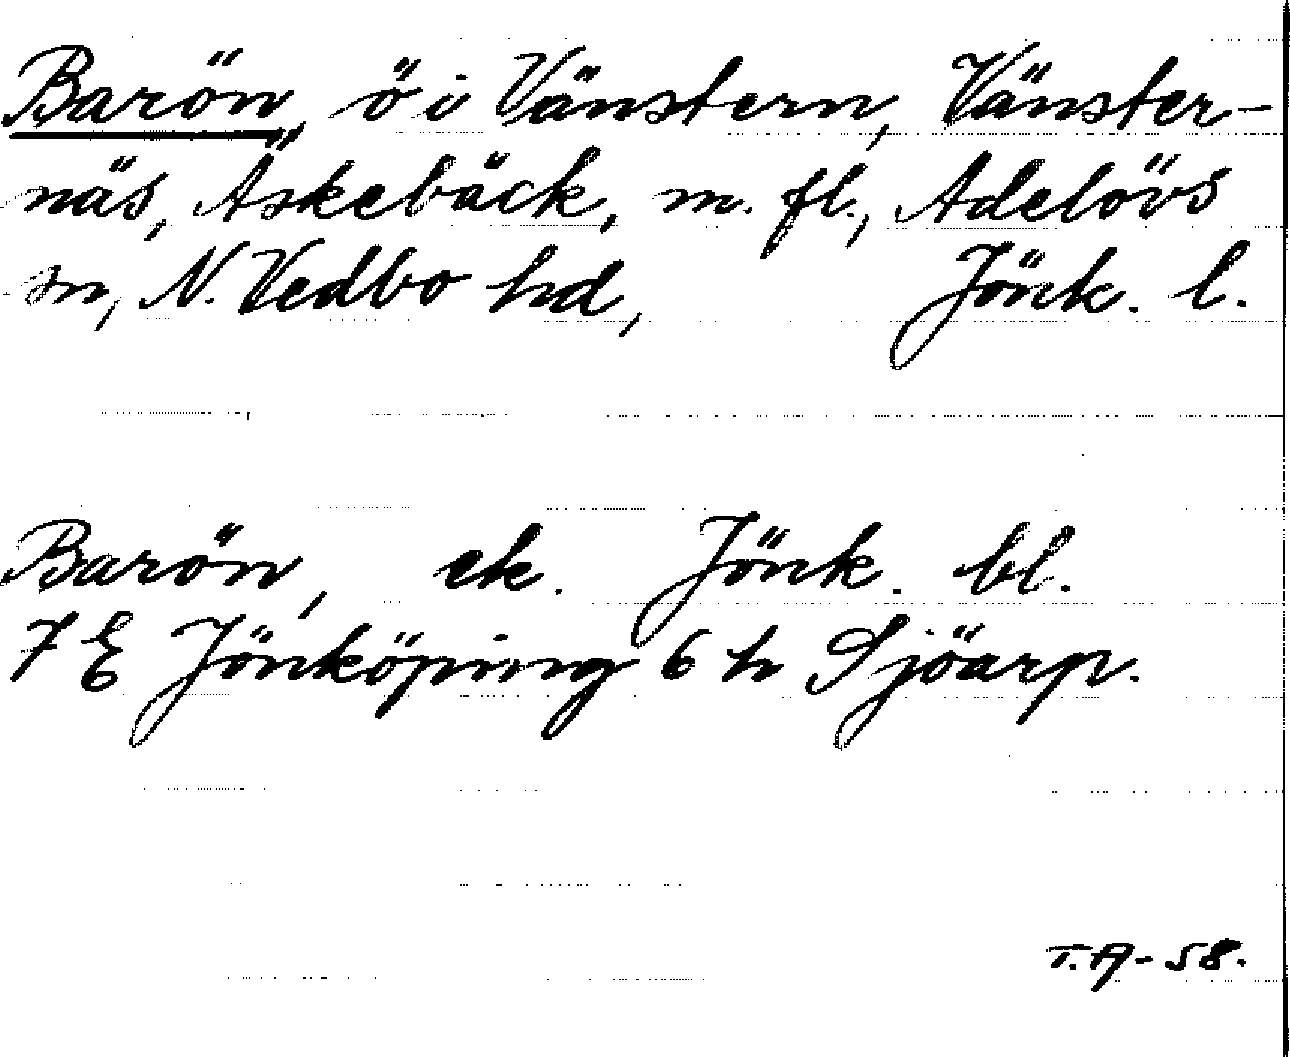 Barön, ö i Vänstern, Vänster-
näs, Äskebäck, m. fl., Adelövs
sn, N. Vedbo hd, Jönk. l.
Barön, ek. Jönk. bl.
7 E Jönköping 6 h Sjöarp.
T.A-58.